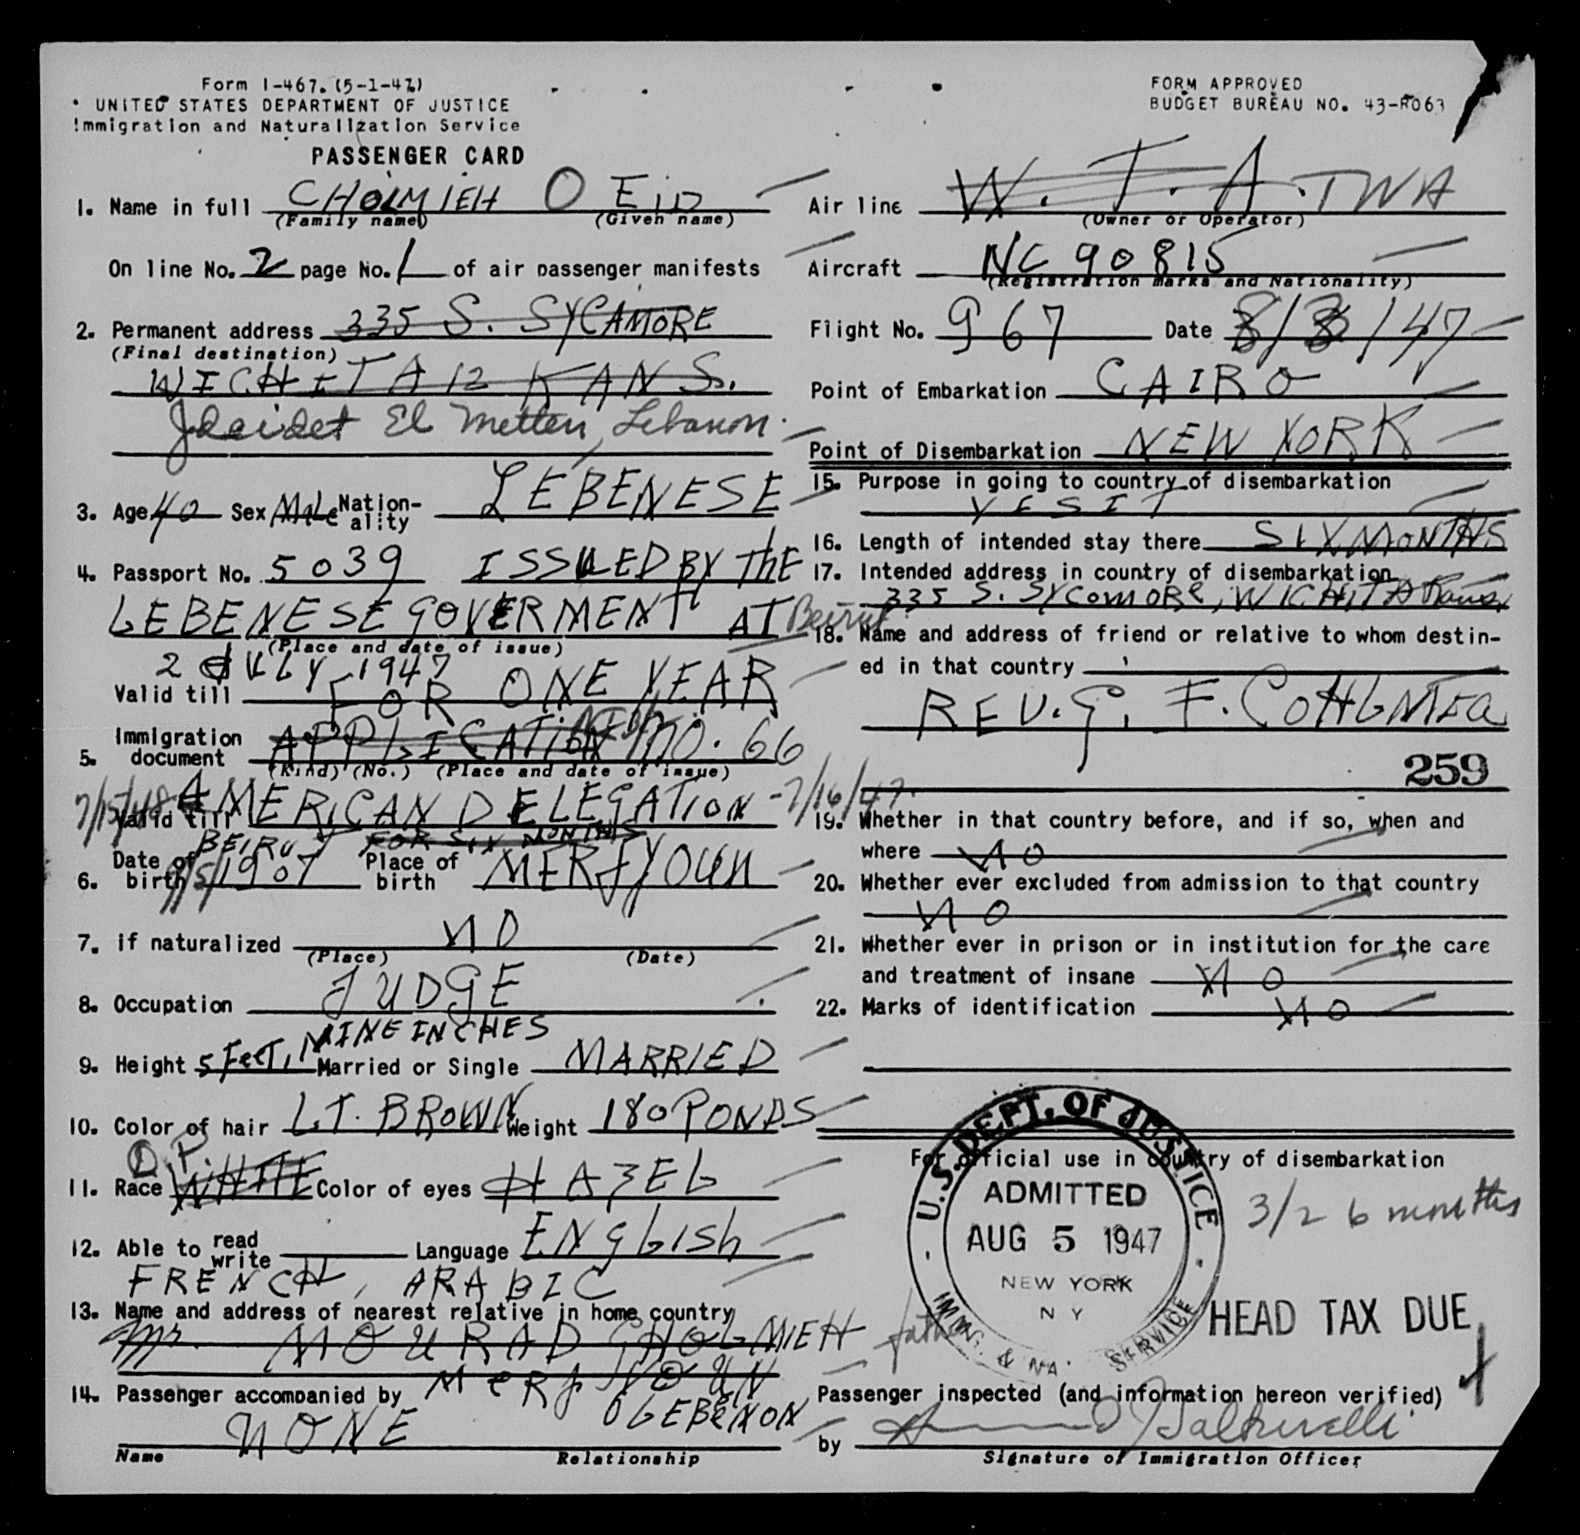 Form I-467. (5-1-47)
UNITED STATES DEPARTMENT OF JUSTICE
Immigration and Naturalization Service
PASSENGER CARD
FORM APPROVED
BUDGET BUREAU NO. 43-R063
1. Name in full CHOLMIEH O EiD
(Family name) (Given name)
On line No. 2 page No. 1 of air passenger manifests
2. Permanent address 335 S. SYCAMORE
(Final destination)
WICHITA 12 KANS.
Jdeidet El Metten, Lebanon.
3. Age 40 Sex MALE Nation-ality LEBENESE
4. Passport No. 5039 ISSUED BY THE
LEBENESE GOVERMENT AT Beirut
(Place and date of issue)
2 JULY 1947
Valid till FOR ONE YEAR
5. Immigration document APPLICATION NO. 66
(Kind) (No.) (Place and date of issue)
AMERICAN DELEGATION - 7/16/47.
7/15/48 Valid till
BEIRUT FOR SIX MONTHS
6. Date of birth 1907 Place of birth MERJYOUN
7. If naturalized NO
(Place) (Date)
8. Occupation JUDGE
9. Height 5 FeeT, NINE INCHES Married or Single MARRIED
10. Color of hair LT. BROWN Weight 180 PONDS
11. Race WHITE Color of eyes HAZEL
12. Able to read write Language ENGLISH
FRENCH, ARABIC
13. Name and address of nearest relative in home country
Mr. MOURAD CHOLMIEH father
MERJYOUN
LEBENON
14. Passenger accompanied by
NONE
Name Relationship
Air line W. T. A. TWA
(Owner or Operator)
Aircraft NC 90815
(Registration marks and Nationality)
Flight No. 967 Date 8/ /47
Point of Embarkation CAIRO
Point of Disembarkation NEW YORK
15. Purpose in going to country of disembarkation
VESIT
16. Length of intended stay there SIX MONTHS
17. Intended address in country of disembarkation
335 S. SYCOMORE, WICHITA Kans.
18. Name and address of friend or relative to whom destin-
ed in that country
REV. G. F.
259
19. Whether in that country before, and if so, when and
where NO
20. Whether ever excluded from admission to that country
NO
21. Whether ever in prison or in institution for the care
and treatment of insane NO
22. Marks of identification NO
For official use in country of disembarkation
U.S. DEPT. OF JUSTICE
ADMITTED
AUG 5 1947
NEW YORK
N Y
IMM. & NAT. SERVICE
3/2 6 months
HEAD TAX DUE
Passenger inspected (and information hereon verified)
by
Signature of Immigration Officer